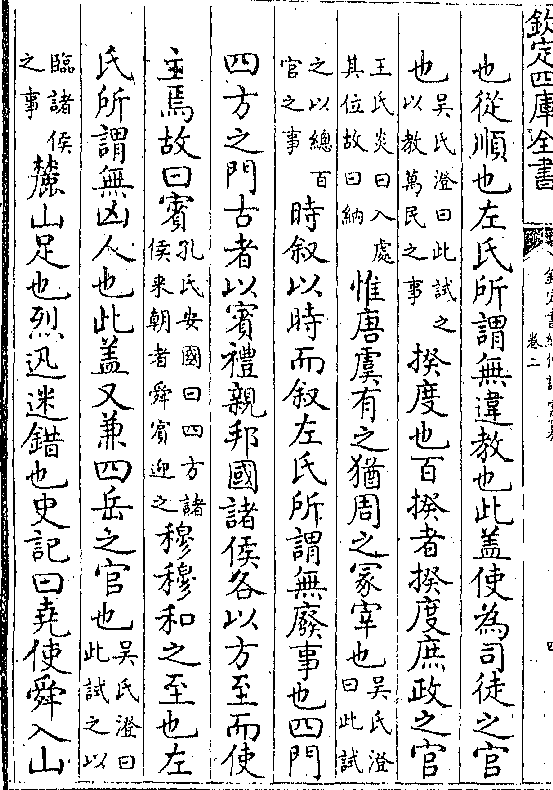 欽定四庫全書
欽定書經傳說彙纂
卷二
四
也從順也左氏所謂無違教也此盖使為司徒之官
也吳氏澄曰此試之以教萬民之事揆度也百揆者揆度庶政之官
王氏炎曰入處其位故曰納惟唐虞有之猶周之冢宰也吳氏澄曰此試
之以總百官之事時叙以時而叙左氏所謂無廢事也四門
四方之門古者以賓禮親邦國諸侯各以方至而使
主焉故曰賓孔氏安國曰四方諸侯来朝者舜賓迎之穆穆和之至也左
氏所謂無凶人也此盖又兼四岳之官也吳氏澄曰此試之以
臨諸侯之事麓山足也烈迅迷錯也史記曰堯使舜入山